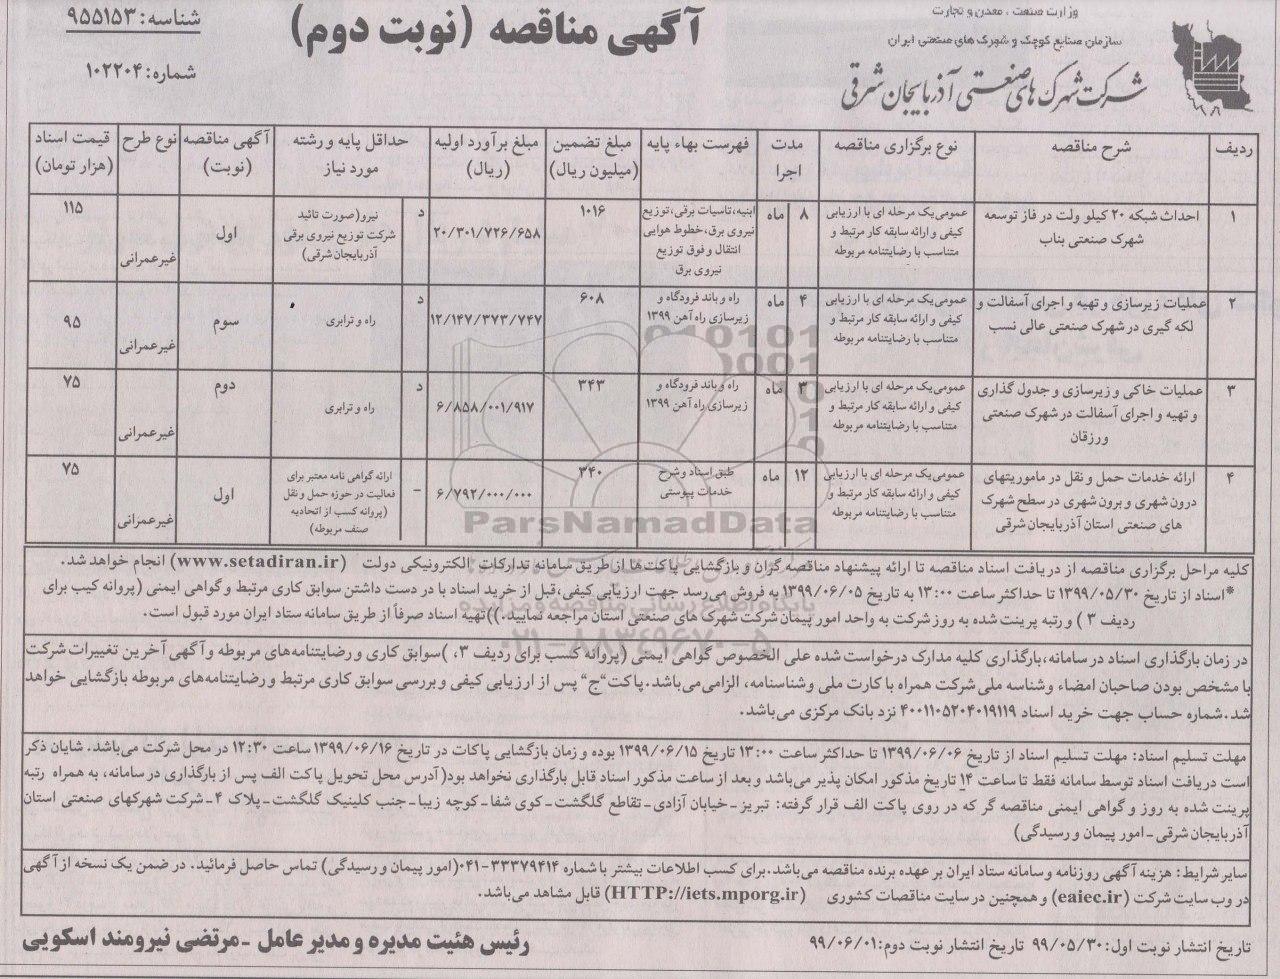 وزارت صنعت ، معدن و تجارت
سازمان صنایع کوچک و شهرک های صنعتی ایران
شرکت شهرک های صنعتی آذربایجان شرقی
آگهی مناقصه (نوبت دوم)
شناسه: ۹۵۵۱۵۳
شماره: ۱۰۲۲۰۴
ردیف
شرح مناقصه
نوع برگزاری مناقصه
مدت
اجرا
فهرست بهاء پایه
مبلغ تضمین
(میلیون ریال)
مبلغ برآورد اولیه
(ریال)
حداقل پایه و رشته
مورد نیاز
آگهی مناقصه
(نوبت)
نوع طرح
قیمت اسناد
(هزار تومان)
۱
احداث شبکه ۲۰ کیلو ولت در فاز توسعه
شهرک صنعتی بناب
عمومی یک مرحله ای با ارزیابی
کیفی و ارائه سابقه کار مرتبط و
متناسب با رضایتنامه مربوطه
۸
ماه
ابنیه،تاسیات برقی،توزیع
نیروی برق،خطوط هوایی
انتقال و فوق توزیع
نیروی برق
۱۰۱۶
۲۰/۳۰۱/۷۲۶/۶۵۸
د
نیرو(صورت تائید
شرکت توزیع نیروی برقی
آذربایجان شرقی)
اول
غیرعمرانی
۱۱۵
۲
عملیات زیرسازی و تهیه و اجرای آسفالت و
لکه گیری در شهرک صنعتی عالی نسب
عمومی یک مرحله ای با ارزیابی
کیفی و ارائه سابقه کار مرتبط و
متناسب با رضایتنامه مربوطه
۴
ماه
راه و باند فرودگاه و
زیرسازی راه آهن ۱۳۹۹
۶۰۸
۱۲/۱۴۷/۳۷۳/۷۴۷
د
راه و ترابری
سوم
غیرعمرانی
۹۵
۳
عملیات خاکی و زیرسازی و جدول گذاری
و تهیه و اجرای آسفالت در شهرک صنعتی
ورزقان
عمومی یک مرحله ای با ارزیابی
کیفی و ارائه سابقه کار مرتبط و
متناسب با رضایتنامه مربوطه
۳
ماه
راه و باند فرودگاه و
زیرسازی راه آهن ۱۳۹۹
۳۴۳
۶/۸۵۸/۰۰۱/۹۱۷
د
راه و ترابری
دوم
غیرعمرانی
۷۵
۴
ارائه خدمات حمل و نقل در ماموریتهای
درون شهری و برون شهری در سطح شهرک
های صنعتی استان آذربایجان شرقی
عمومی یک مرحله ای با ارزیابی
کیفی و ارائه سابقه کار مرتبط و
متناسب با رضایتنامه مربوطه
۱۲
ماه
طبق اسناد و شرح
خدمات پیوستی
۳۴۰
۶/۷۹۲/۰۰۰/۰۰۰
-
ارائه گواهی نامه معتبر برای
فعالیت در حوزه حمل و نقل
(پروانه کسب از اتحادیه
صنف مربوطه)
اول
غیرعمرانی
۷۵
ParsNamadData
کلیه مراحل برگزاری مناقصه از دریافت اسناد مناقصه تا ارائه پیشنهاد مناقصه گران و بازگشایی پاکت ها از طریق سامانه تدارکات الکترونیکی دولت (www.setadiran.ir) انجام خواهد شد.
*اسناد از تاریخ ۱۳۹۹/۰۵/۳۰ تا حداکثر ساعت ۱۳:۰۰ به تاریخ ۱۳۹۹/۰۶/۰۵ به فروش می‌رسد جهت ارزیابی کیفی،قبل از خرید اسناد با در دست داشتن سوابق کاری مرتبط و گواهی ایمنی (پروانه کیب برای
ردیف ۳ ) و رتبه پرینت شده به روز شرکت به واحد امور پیمان شرکت شهرک های صنعتی استان مراجعه نمایید.))تهیه اسناد صرفاً از طریق سامانه ستاد ایران مورد قبول است.
در زمان بارگذاری اسناد در سامانه،بارگذاری کلیه مدارک درخواست شده علی الخصوص گواهی ایمنی (پروانه کسب برای ردیف ۳، )سوابق کاری و رضایتنامه‌های مربوطه و آگهی آخرین تغییرات شرکت
با مشخص بودن صاحبان امضاء و شناسه ملی شرکت همراه با کارت ملی و شناسنامه، الزامی می‌باشد.پاکت“ج” پس از ارزیابی کیفی و بررسی سوابق کاری مرتبط و رضایتنامه‌های مربوطه بازگشایی خواهد
شد.شماره حساب جهت خرید اسناد ۴۰۰۱۱۰۵۲۰۴۰۱۹۱۱۹ نزد بانک مرکزی می‌باشد.
مهلت تسلیم اسناد: مهلت تسلیم اسناد از تاریخ ۱۳۹۹/۰۶/۰۶ تا حداکثر ساعت ۱۳:۰۰ تاریخ ۱۳۹۹/۰۶/۱۵ بوده و زمان بازگشایی پاکات در تاریخ ۱۳۹۹/۰۶/۱۶ ساعت ۱۲:۳۰ در محل شرکت می‌باشد. شایان ذکر
است دریافت اسناد توسط سامانه فقط تا ساعت ۱۴ تاریخ مذکور امکان پذیر می‌باشد و بعد از ساعت مذکور اسناد قابل بارگذاری نخواهد بود(آدرس محل تحویل پاکت الف پس از بارگذاری در سامانه، به همراه رتبه
پرینت شده به روز و گواهی ایمنی مناقصه گر که در روی پاکت الف قرار گرفته: تبریز-خیابان آزادی-تقاطع گلگشت-کوی شفا-کوچه زیبا-جنب کلینیک گلگشت-پلاک ۴-شرکت شهرکهای صنعتی استان
آذربایجان شرقی-امور پیمان و رسیدگی)
سایر شرایط: هزینه آگهی روزنامه و سامانه ستاد ایران بر عهده برنده مناقصه می‌باشد.برای کسب اطلاعات بیشتر با شماره ۳۳۳۷۹۴۱۴-۰۴۱(امور پیمان و رسیدگی) تماس حاصل فرمائید. در ضمن یک نسخه از آگهی
در وب سایت شرکت (eaiec.ir) و همچنین در سایت مناقصات کشوری (HTTP://iets.mporg.ir) قابل مشاهد می‌باشد.
تاریخ انتشار نوبت اول: ۹۹/۰۵/۳۰ تاریخ انتشار نوبت دوم: ۹۹/۰۶/۰۱
رئیس هئیت مدیره و مدیر عامل -مرتضی نیرومند اسکویی